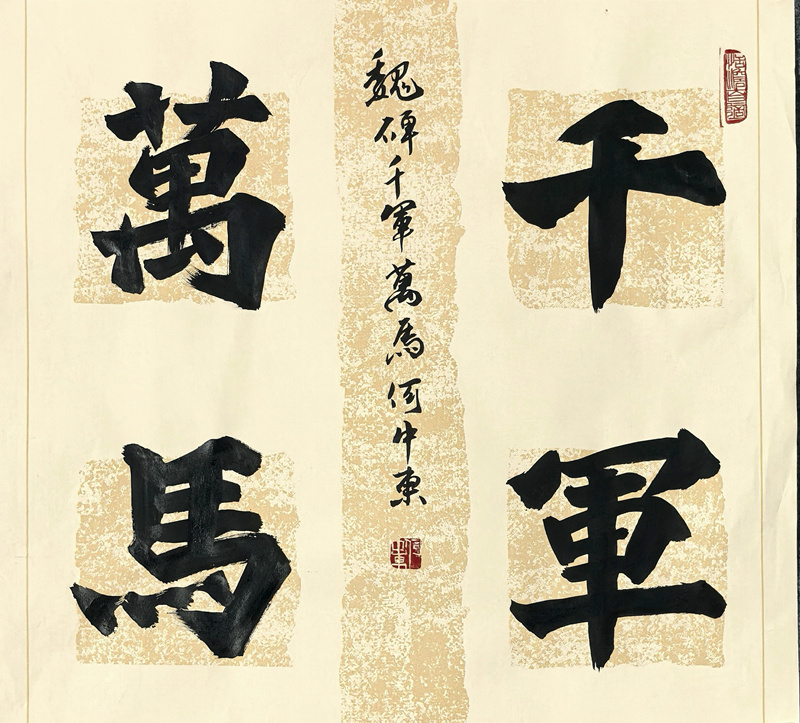 千軍
萬馬
魏碑千軍萬馬何中東